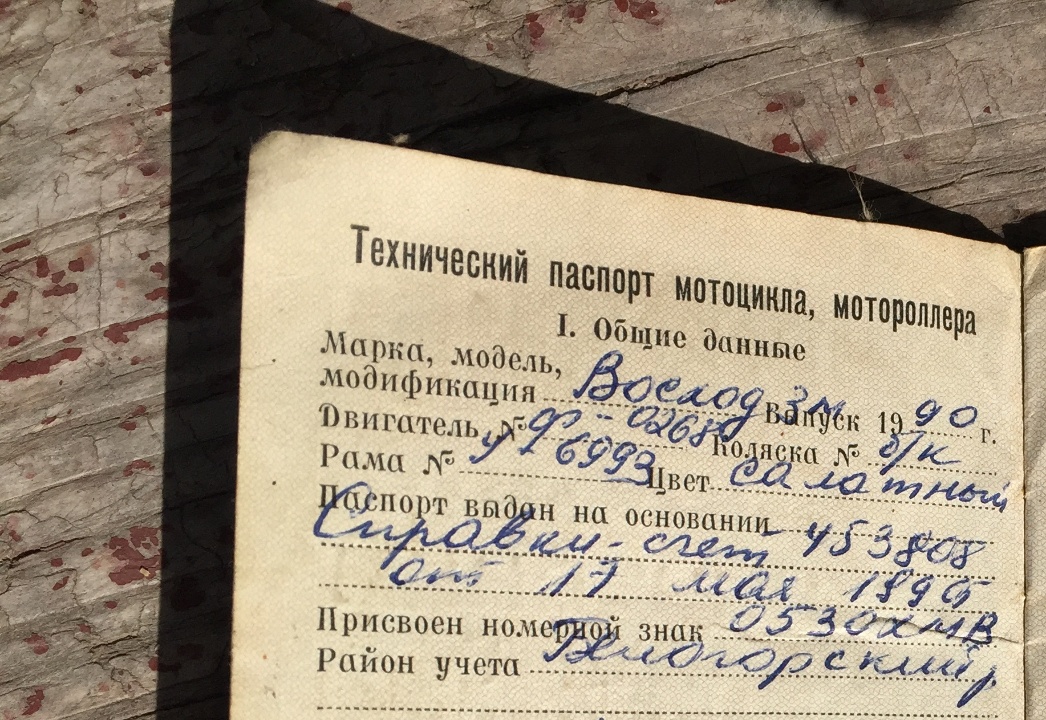 Технический паспорт мотоцикла, мотороллера
I. Общие данные
Марка, модель,
модификация Восход 3м Выпуск 1990 г.
Двигатель № Ф-02680 Коляска № б/к
Рама № У-6993 Цвет салатный
Паспорт выдан на основании
Справки-счет 453808
от 17 мая 1990
Присвоен номерной знак 0530хмВ
Район учета Белогорский р